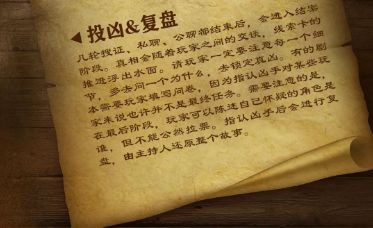 投凶&复盘
几轮搜证、私聊、公聊都结束后，会进入结案
阶段。真相会随着玩家之间的交谈，线索卡的
推进浮出水面。请玩家一定要注意每一个细
节，多去问一个为什么，去锁定真凶。有的剧
本需要玩家填写问卷，因为指认凶手对某些玩
家来说也许并不是最终任务。需要注意的是，
在最后阶段，玩家可以陈述自己怀疑的角色是
谁，但不能公然拉票。指认凶手后会进行复
盘，由主持人还原整个故事。